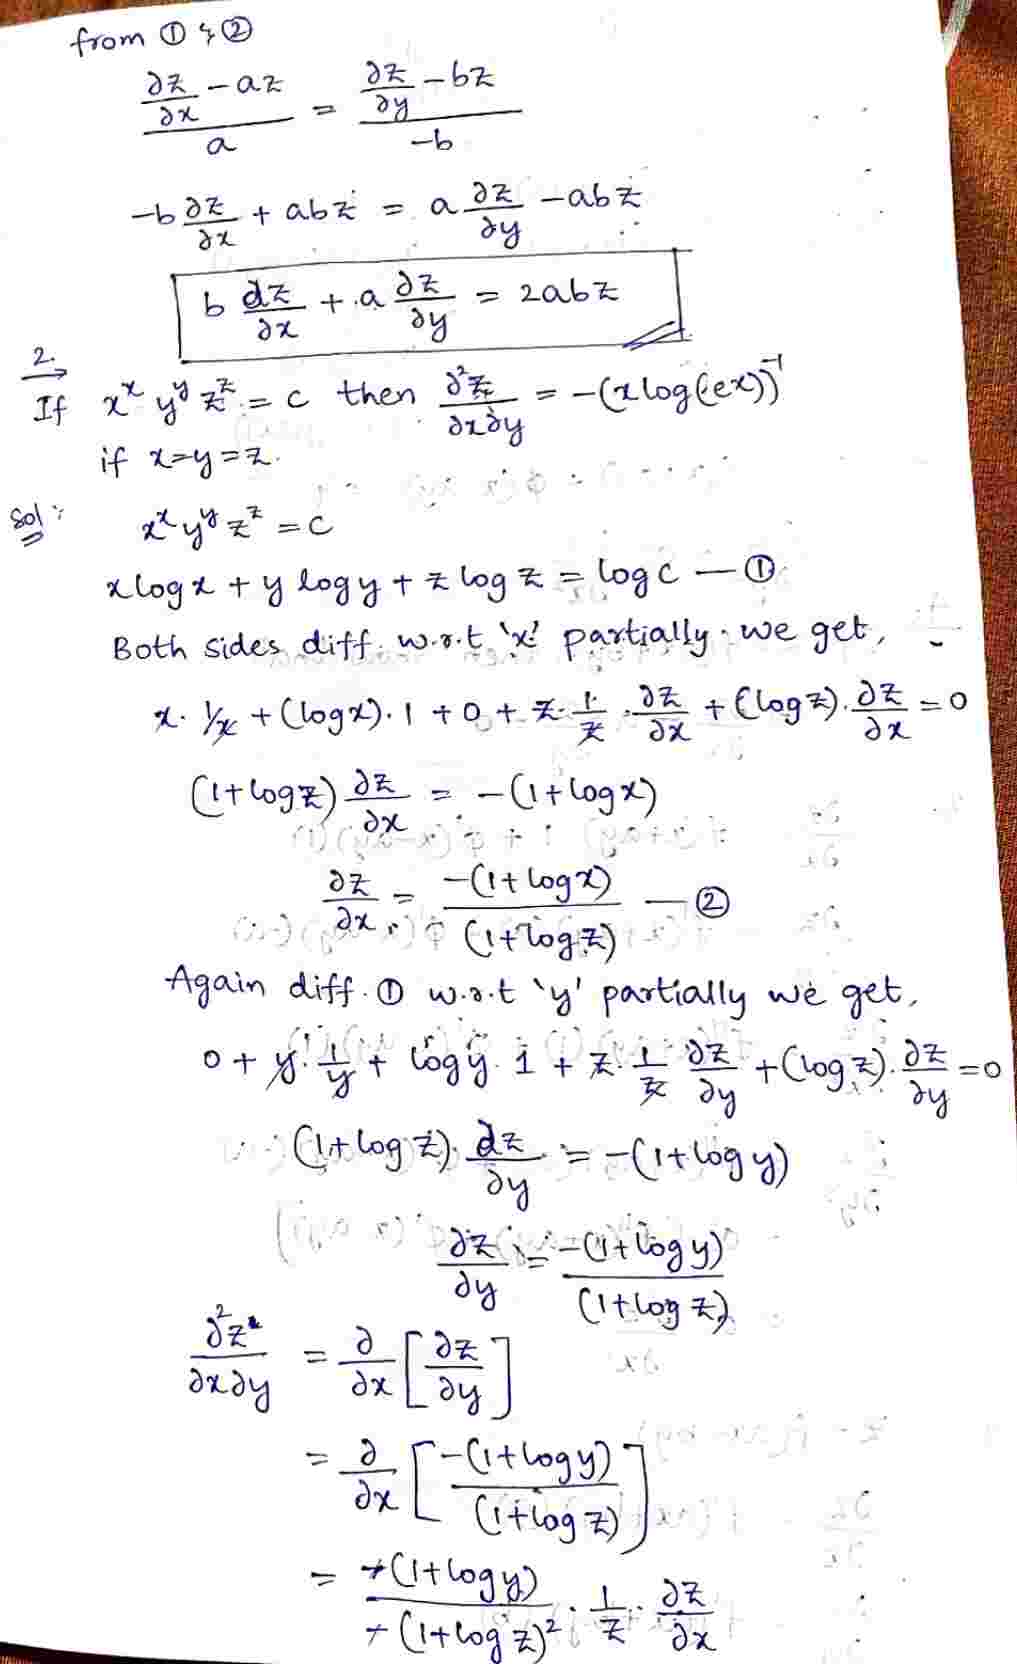 from ① & ②
(∂z/∂x - az)/a = (∂z/∂y - bz)/-b
-b ∂z/∂x + abz = a ∂z/∂y - abz
b dz/∂x + a ∂z/∂y = 2abz
2.
If x^x y^y z^z = c then ∂²z/∂x∂y = -(x log(ex))^-1
if x=y=z.
Sol: x^x y^y z^z = c
x log x + y log y + z log z = log c — ①
Both sides diff. w.r.t 'x' partially we get,
x. 1/x + (log x). 1 + 0 + z. 1/z . ∂z/∂x + (log z). ∂z/∂x = 0
(1+log z) ∂z/∂x = -(1+log x)
∂z/∂x = -(1+log x)/(1+log z) — ②
Again diff. ① w.r.t 'y' partially we get,
0 + y. 1/y + log y. 1 + z. 1/z ∂z/∂y + (log z). ∂z/∂y = 0
(1+log z). dz/∂y = -(1+log y)
∂z/∂y = -(1+log y)/(1+log z)
∂²z/∂x∂y = ∂/∂x [∂z/∂y]
= ∂/∂x [-(1+log y)/(1+log z)]
= +(1+log y)/+(1+log z)² . 1/z . ∂z/∂x